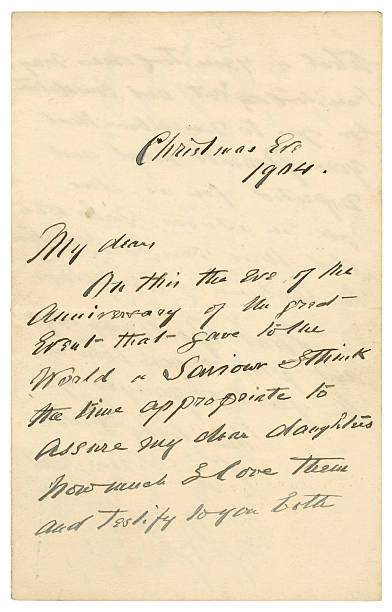 Christmas Eve
1904.
My dear,
On this the Eve of the
Anniversary of the great
Event that gave to the
World a Saviour I think
the time appropriate to
assure my dear daughters
how much I love them
and testify to you both